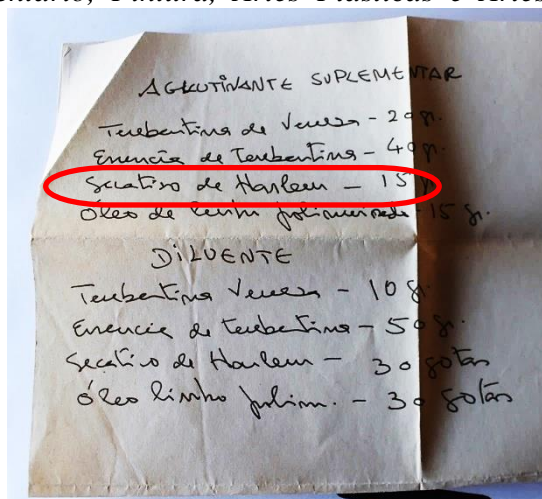 Pintura, Artes Plásticas e Artes
AGLUTINANTE SUPLEMENTAR
Terebentina de Veneza - 20 gr.
Essencia de Terebentina - 40 gr.
Secativo de Harlem - 15 gr
Óleo de linho polimerizado - 15 gr.
DILUENTE
Terebentina Veneza - 10 gr.
Essencia de terebentina - 50 gr.
Secativo de Harlem - 30 gotas
óleo linho polim. - 30 gotas